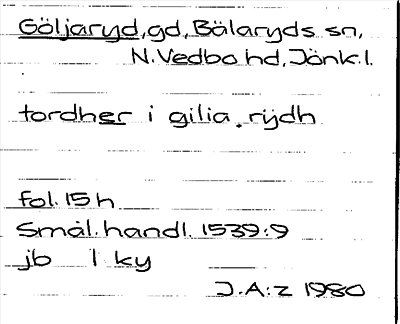 Göljaryd, gd, Bälaryds sn,
N. Vedbo hd, Jönk. l.
tordher i gilia. rÿdh
fol. 15 h
Smål. handl. 1539:9
jb 1 ky
J.A:z 1980